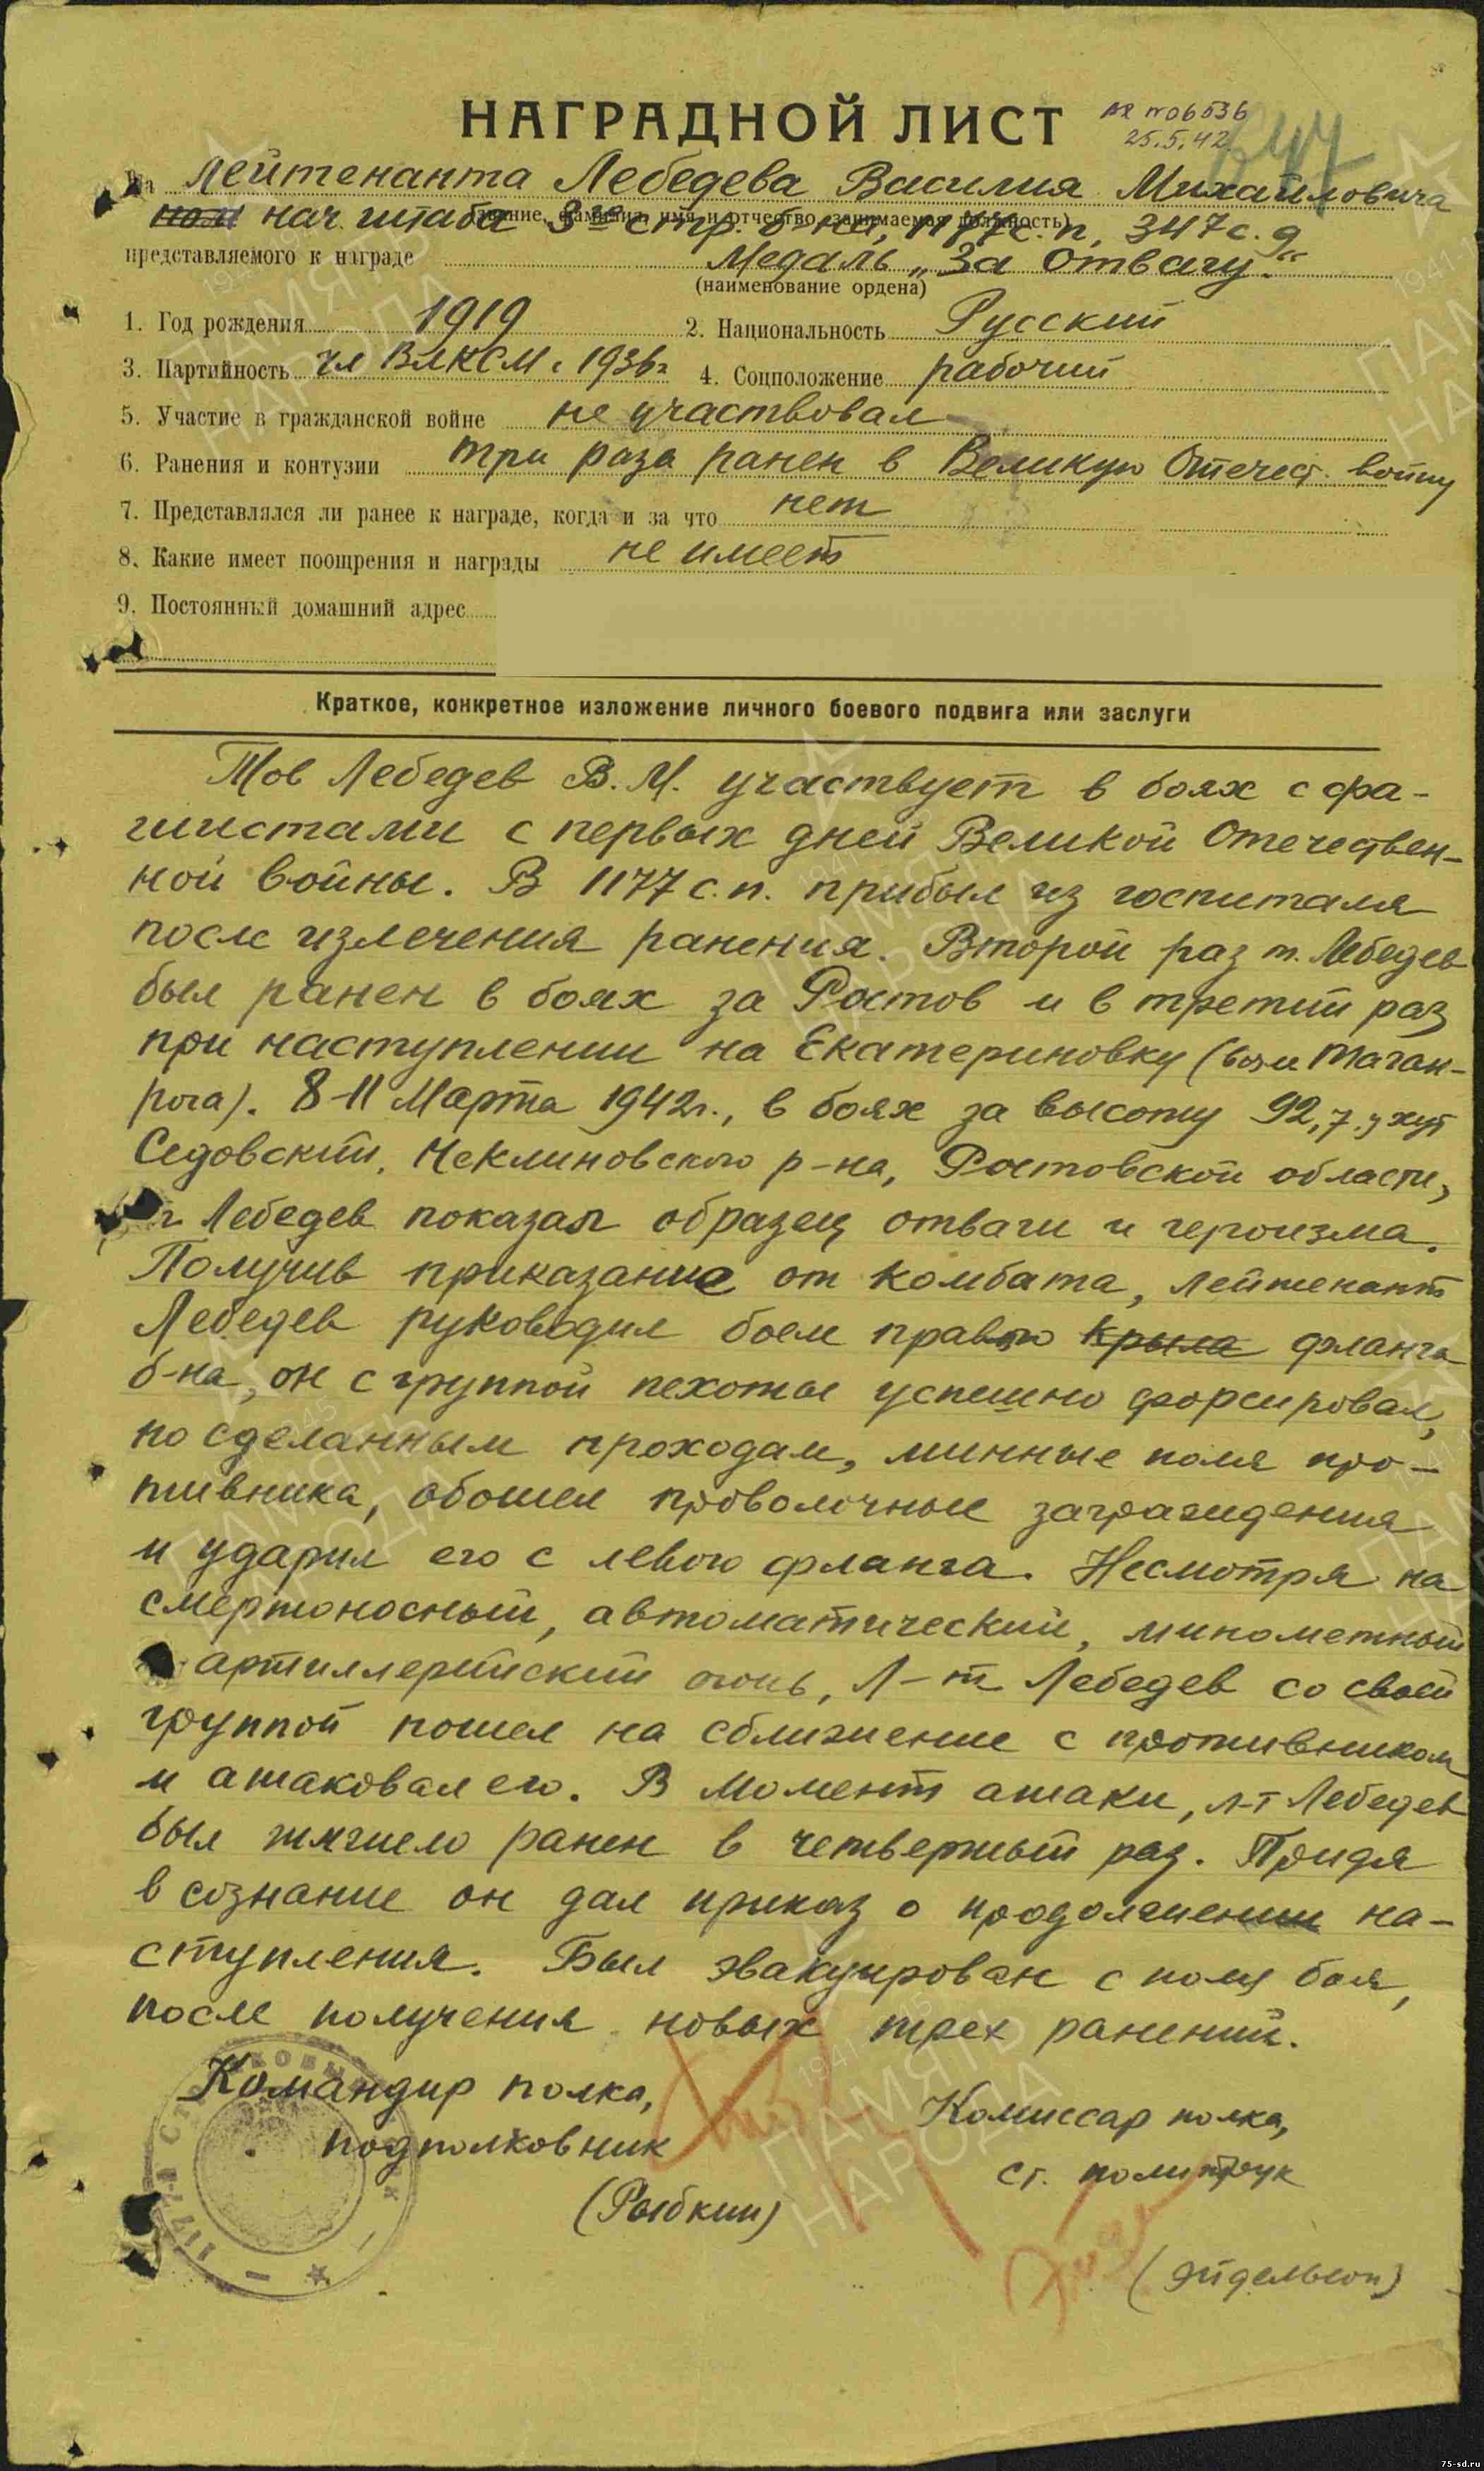 НАГРАДНОЙ ЛИСТ
25.5.42
На лейтенанта Лебедева Василия Михайловича
(звание, фамилия, имя и отчество, занимаемая должность)
нач. штаба 3го стр. б-на, 1177 с.п, 347 с.д
представляемого к награде Медаль „За Отвагу“
(наименование ордена)
1. Год рождения 1919 2. Национальность Русский
3. Партийность чл ВЛКСМ с 1936г 4. Соцположение рабочий
5. Участие в гражданской войне не участвовал
6. Ранения и контузии три раза ранен в Великую Отечест. войну
7. Представлялся ли ранее к награде, когда и за что нет
8. Какие имеет поощрения и награды не имеет
9. Постоянный домашний адрес
Краткое, конкретное изложение личного боевого подвига или заслуги
Тов Лебедев В. М. участвует в боях с фа-
шистами с первых дней Великой Отечествен-
ной войны. В 1177 с.п. прибыл из госпиталя
после излечения ранения. Второй раз т. Лебедев
был ранен в боях за Ростов и в третий раз
при наступлении на Екатериновку (вози Таган-
рога). 8-11 Марта 1942г., в боях за высоту 92,7 у хут
Седовский, Неклиновского р-на, Ростовской области,
т Лебедев показал образец отваги и героизма.
Получив приказание от комбата, лейтенант
Лебедев руководил боем право крыла фланга
б-на, он с группой пехоты успешно форсировал,
по сделанным проходам, минные поля про-
тивника, обошел проволочные заграждения
и ударил его с левого фланга. Несмотря на
смертоносный, автоматический, минометный
артиллерийский огонь, Л-т Лебедев со своей
группой пошел на сближение с противником
и атаковал его. В момент атаки, л-т Лебедев
был тяжело ранен в четвертый раз. Придя
в сознание он дал приказ о продолжении на-
ступления. Был эвакуирован с поля боя,
после получения новых трех ранений.
Командир полка,
подполковник
(Рыбкин)
Комиссар полка,
ст. политрук
(Эйдельсон)
1941-1945
ПАМЯТЬ
НАРОДА
75-sd.ru